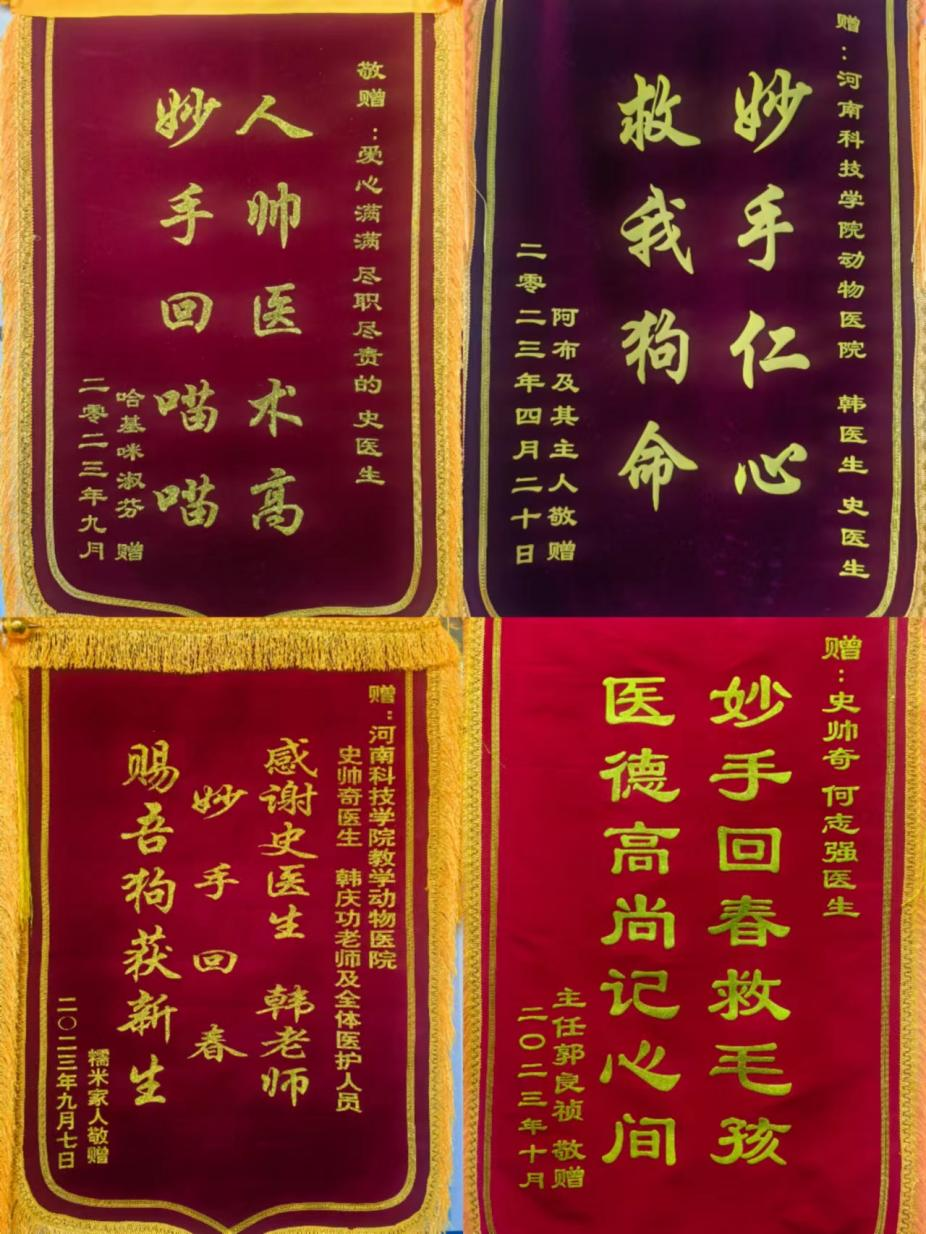 敬赠：爱心满满 尽职尽责的 史医生
人帅医术高
妙手回喵喵
哈基咪淑芬 赠
二零二三年九月
赠：河南科技学院动物医院 韩医生 史医生
妙手仁心
救我狗命
阿布及其主人敬赠
二零二三年四月二十日
赠：河南科技学院教学动物医院
史帅奇医生 韩庆功老师及全体医护人员
感谢史医生 韩老师
妙手回春
赐吾狗获新生
糯米家人敬赠
二〇二三年九月七日
赠：史帅奇 何志强医生
妙手回春救毛孩
医德高尚记心间
主任郭良祯 敬赠
二〇二三年十月